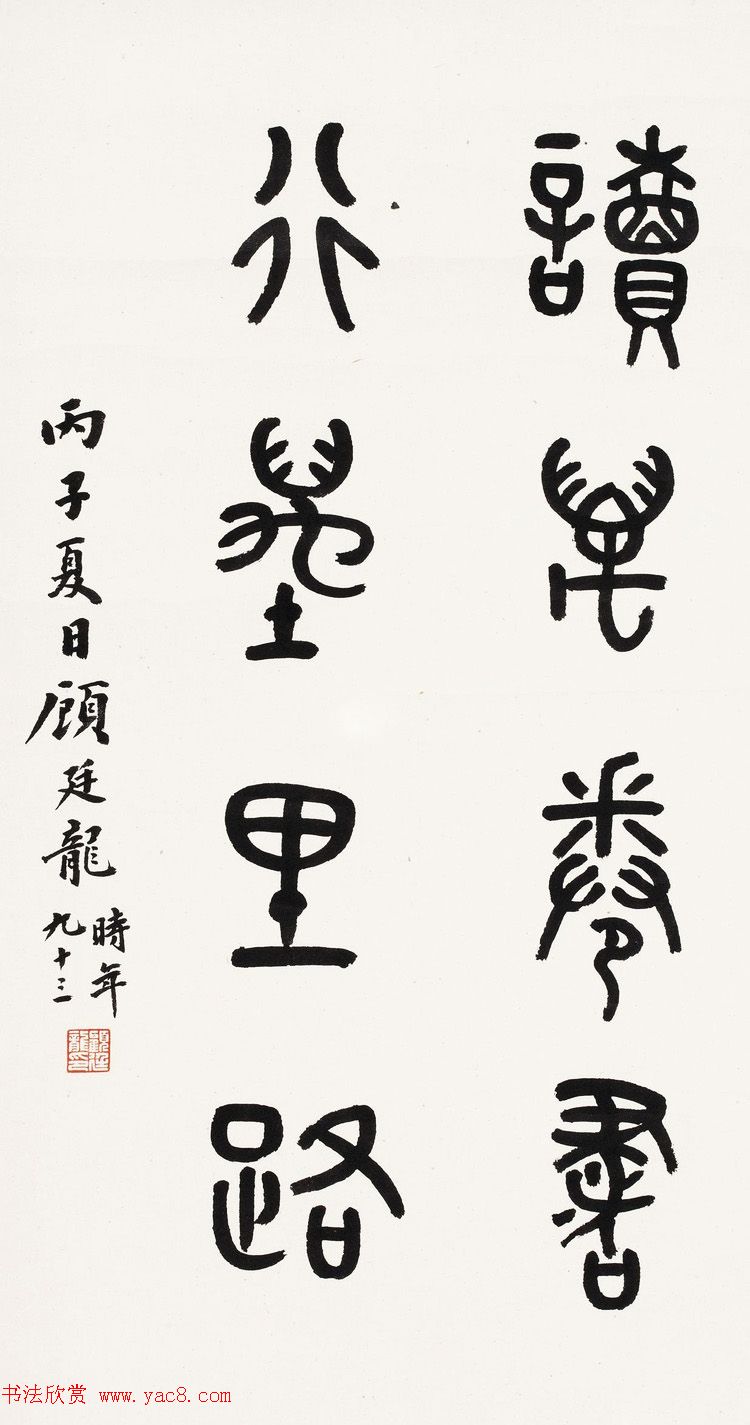 讀萬卷書
行萬里路
丙子夏日顧廷龍時年九十三
顧廷龍印
书法欣赏 www.yac8.com